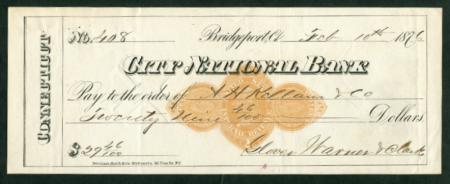 No. 408 Bridgeport, Ct Feb 10th 1876
CONNECTICUT
CITY NATIONAL BANK
Pay to the order of A H Kellam & Co
Twenty Nine 46/100 Dollars
$ 29 46/100 Glover Warner & Clark